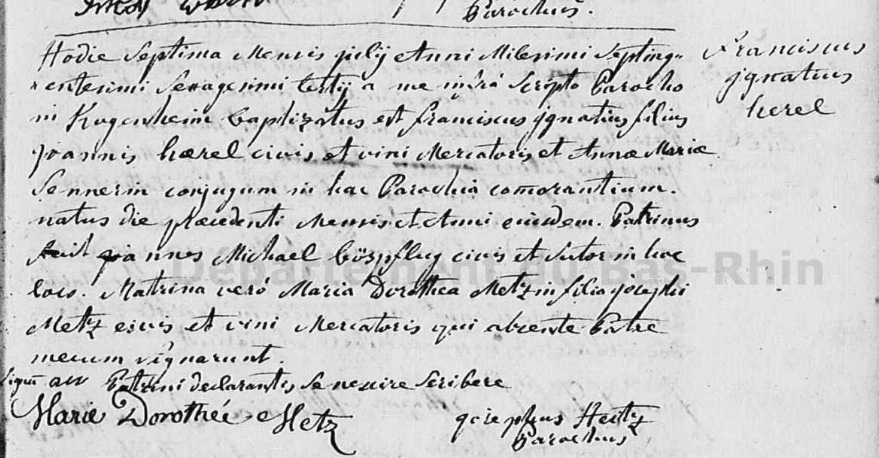 Parochus.
Hodie Septima Mensis julij Anni Milesimi Septing-
entesimi Sexagesimi tertij a me infrà Scripto Parocho
in Kogenheim baptizatus est franciscus jgnatius filius
joannis hærel civis et vini Mercatoris et Annæ Mariæ
Sennerin conjugum in hac Parochia comorantium.
natus die præcedenti Mensis et Anni eiusdem. Patrinus
fuit joannes Michael böspflug civis et Sutor in hoc
loco. Matrina verò Maria Dorothea Metzin filia josephi
Metz civis et vini Mercatoris qui absente Patre
mecum signarunt.
Signum Patrini declarantis se nescire Scribere
Marie Dorothée Metz
josephus
Parochus
Franciscus
jgnatius
herel
Département du Bas-Rhin